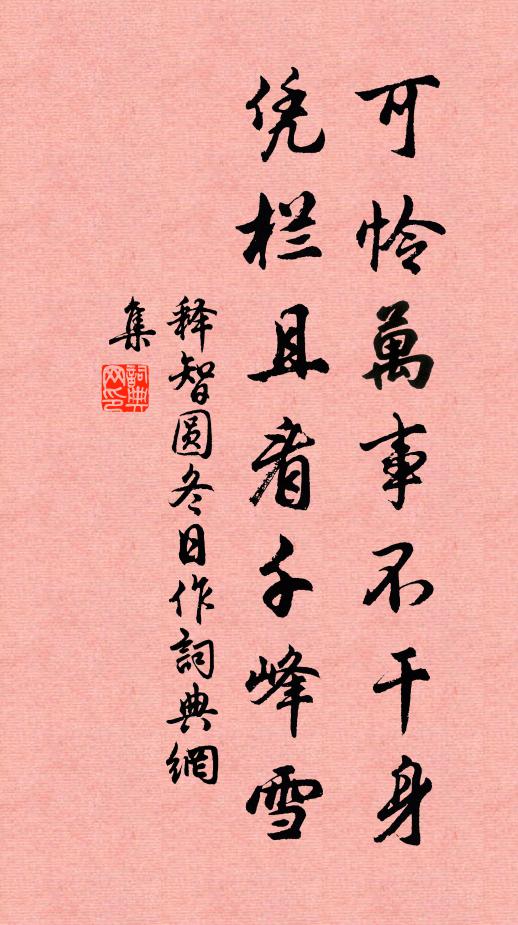 可怜萬事不干身
凭栏且看千峰雪
释智圆冬日作詞典網
集
詞典网印